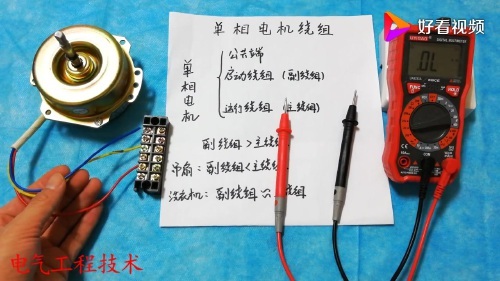 好看视频
单相电机绕组
单相电机
公共端
启动绕组 (副绕组)
运行绕组 (主绕组)
副绕组>主绕组
吊扇:副绕组<主绕
洗衣机:副绕组 绕组
OL
电气工程技术